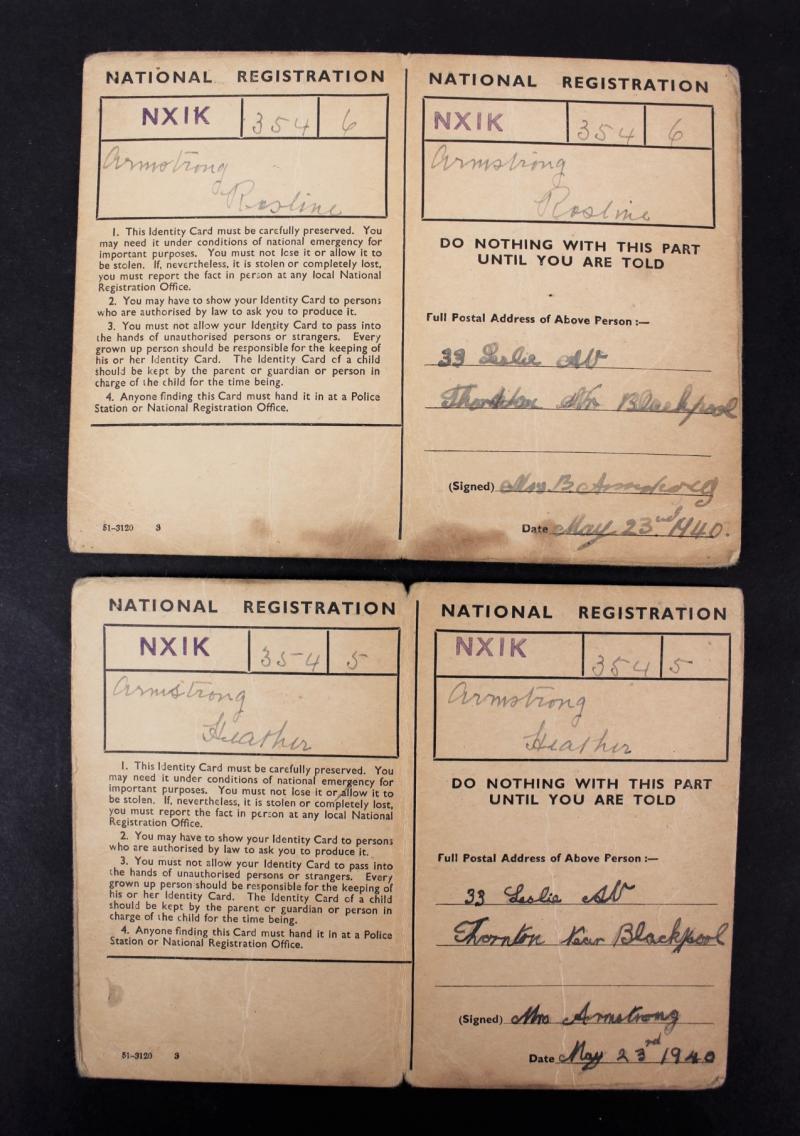 NATIONAL REGISTRATION
NXIK 354 6
Armstrong
Rosline
1. This Identity Card must be carefully preserved. You
may need it under conditions of national emergency for
important purposes. You must not lose it or allow it to
be stolen. If, nevertheless, it is stolen or completely lost,
you must report the fact in person at any local National
Registration Office.
2. You may have to show your Identity Card to persons
who are authorised by law to ask you to produce it.
3. You must not allow your Identity Card to pass into
the hands of unauthorised persons or strangers. Every
grown up person should be responsible for the keeping of
his or her Identity Card. The Identity Card of a child
should be kept by the parent or guardian or person in
charge of the child for the time being.
4. Anyone finding this Card must hand it in at a Police
Station or National Registration Office.
51-3120 3
NATIONAL REGISTRATION
NXIK 354 6
Armstrong
Rosline
DO NOTHING WITH THIS PART
UNTIL YOU ARE TOLD
Full Postal Address of Above Person :—
33 Leslie AV
Thornton Nr Blackpool
(Signed) Mrs. B. Armstrong
Date May 23nd 1940.
NATIONAL REGISTRATION
NXIK 354 5
Armstrong
Heather
1. This Identity Card must be carefully preserved. You
may need it under conditions of national emergency for
important purposes. You must not lose it or allow it to
be stolen. If, nevertheless, it is stolen or completely lost,
you must report the fact in person at any local National
Registration Office.
2. You may have to show your Identity Card to persons
who are authorised by law to ask you to produce it.
3. You must not allow your Identity Card to pass into
the hands of unauthorised persons or strangers. Every
grown up person should be responsible for the keeping of
his or her Identity Card. The Identity Card of a child
should be kept by the parent or guardian or person in
charge of the child for the time being.
4. Anyone finding this Card must hand it in at a Police
Station or National Registration Office.
51-3120 3
NATIONAL REGISTRATION
NXIK 354 5
Armstrong
Heather
DO NOTHING WITH THIS PART
UNTIL YOU ARE TOLD
Full Postal Address of Above Person :—
33 Leslie AV
Thornton Near Blackpool
(Signed) Mrs Armstrong
Date May 23rd 1940